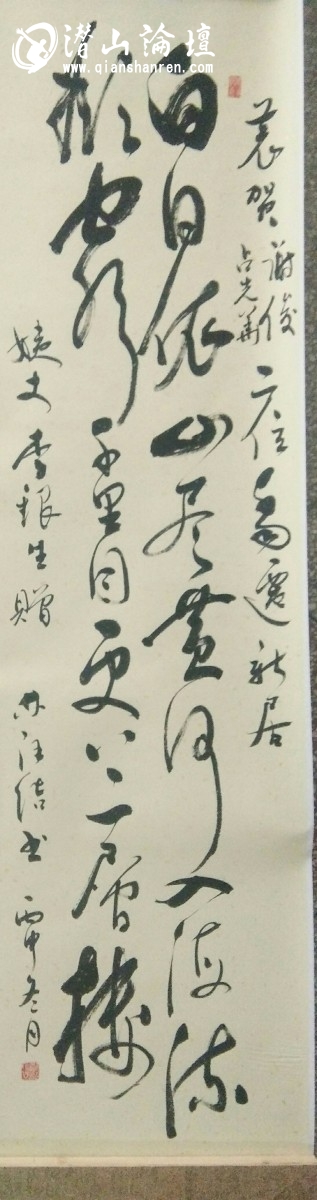 潜山論壇
www.qianshanren.com
恭贺谢俊
占光华
二位乔迁新居
白日依山尽黄河入海流
欲穷千里目更上一層楼
姨丈李银生贈
书丙申冬月